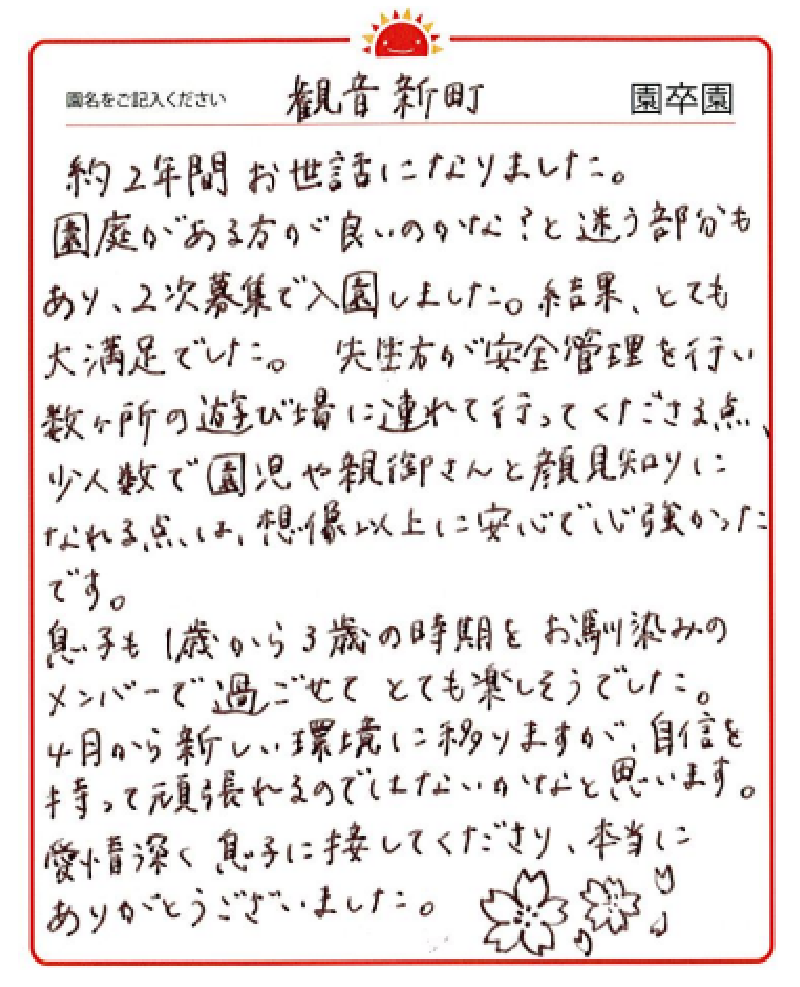 園名をご記入ください 観音新町 園卒園
約2年間お世話になりました。
園庭がある方が良いのかな?と迷う部分も
あり、2次募集で入園しました。結果、とても
大満足でした。 先生方が安全管理を行い
数ヶ所の遊び場に連れて行ってくださる点、
少人数で園児や親御さんと顔見知りに
なれる点は、想像以上に安心で心強かった
です。
息子も1歳から3歳の時期をお馴染みの
メンバーで過ごせてとても楽しそうでした。
4月から新しい環境に移りますが、自信を
持って頑張れるのではないかなと思います。
愛情深く息子に接してくださり、本当に
ありがとうございました。